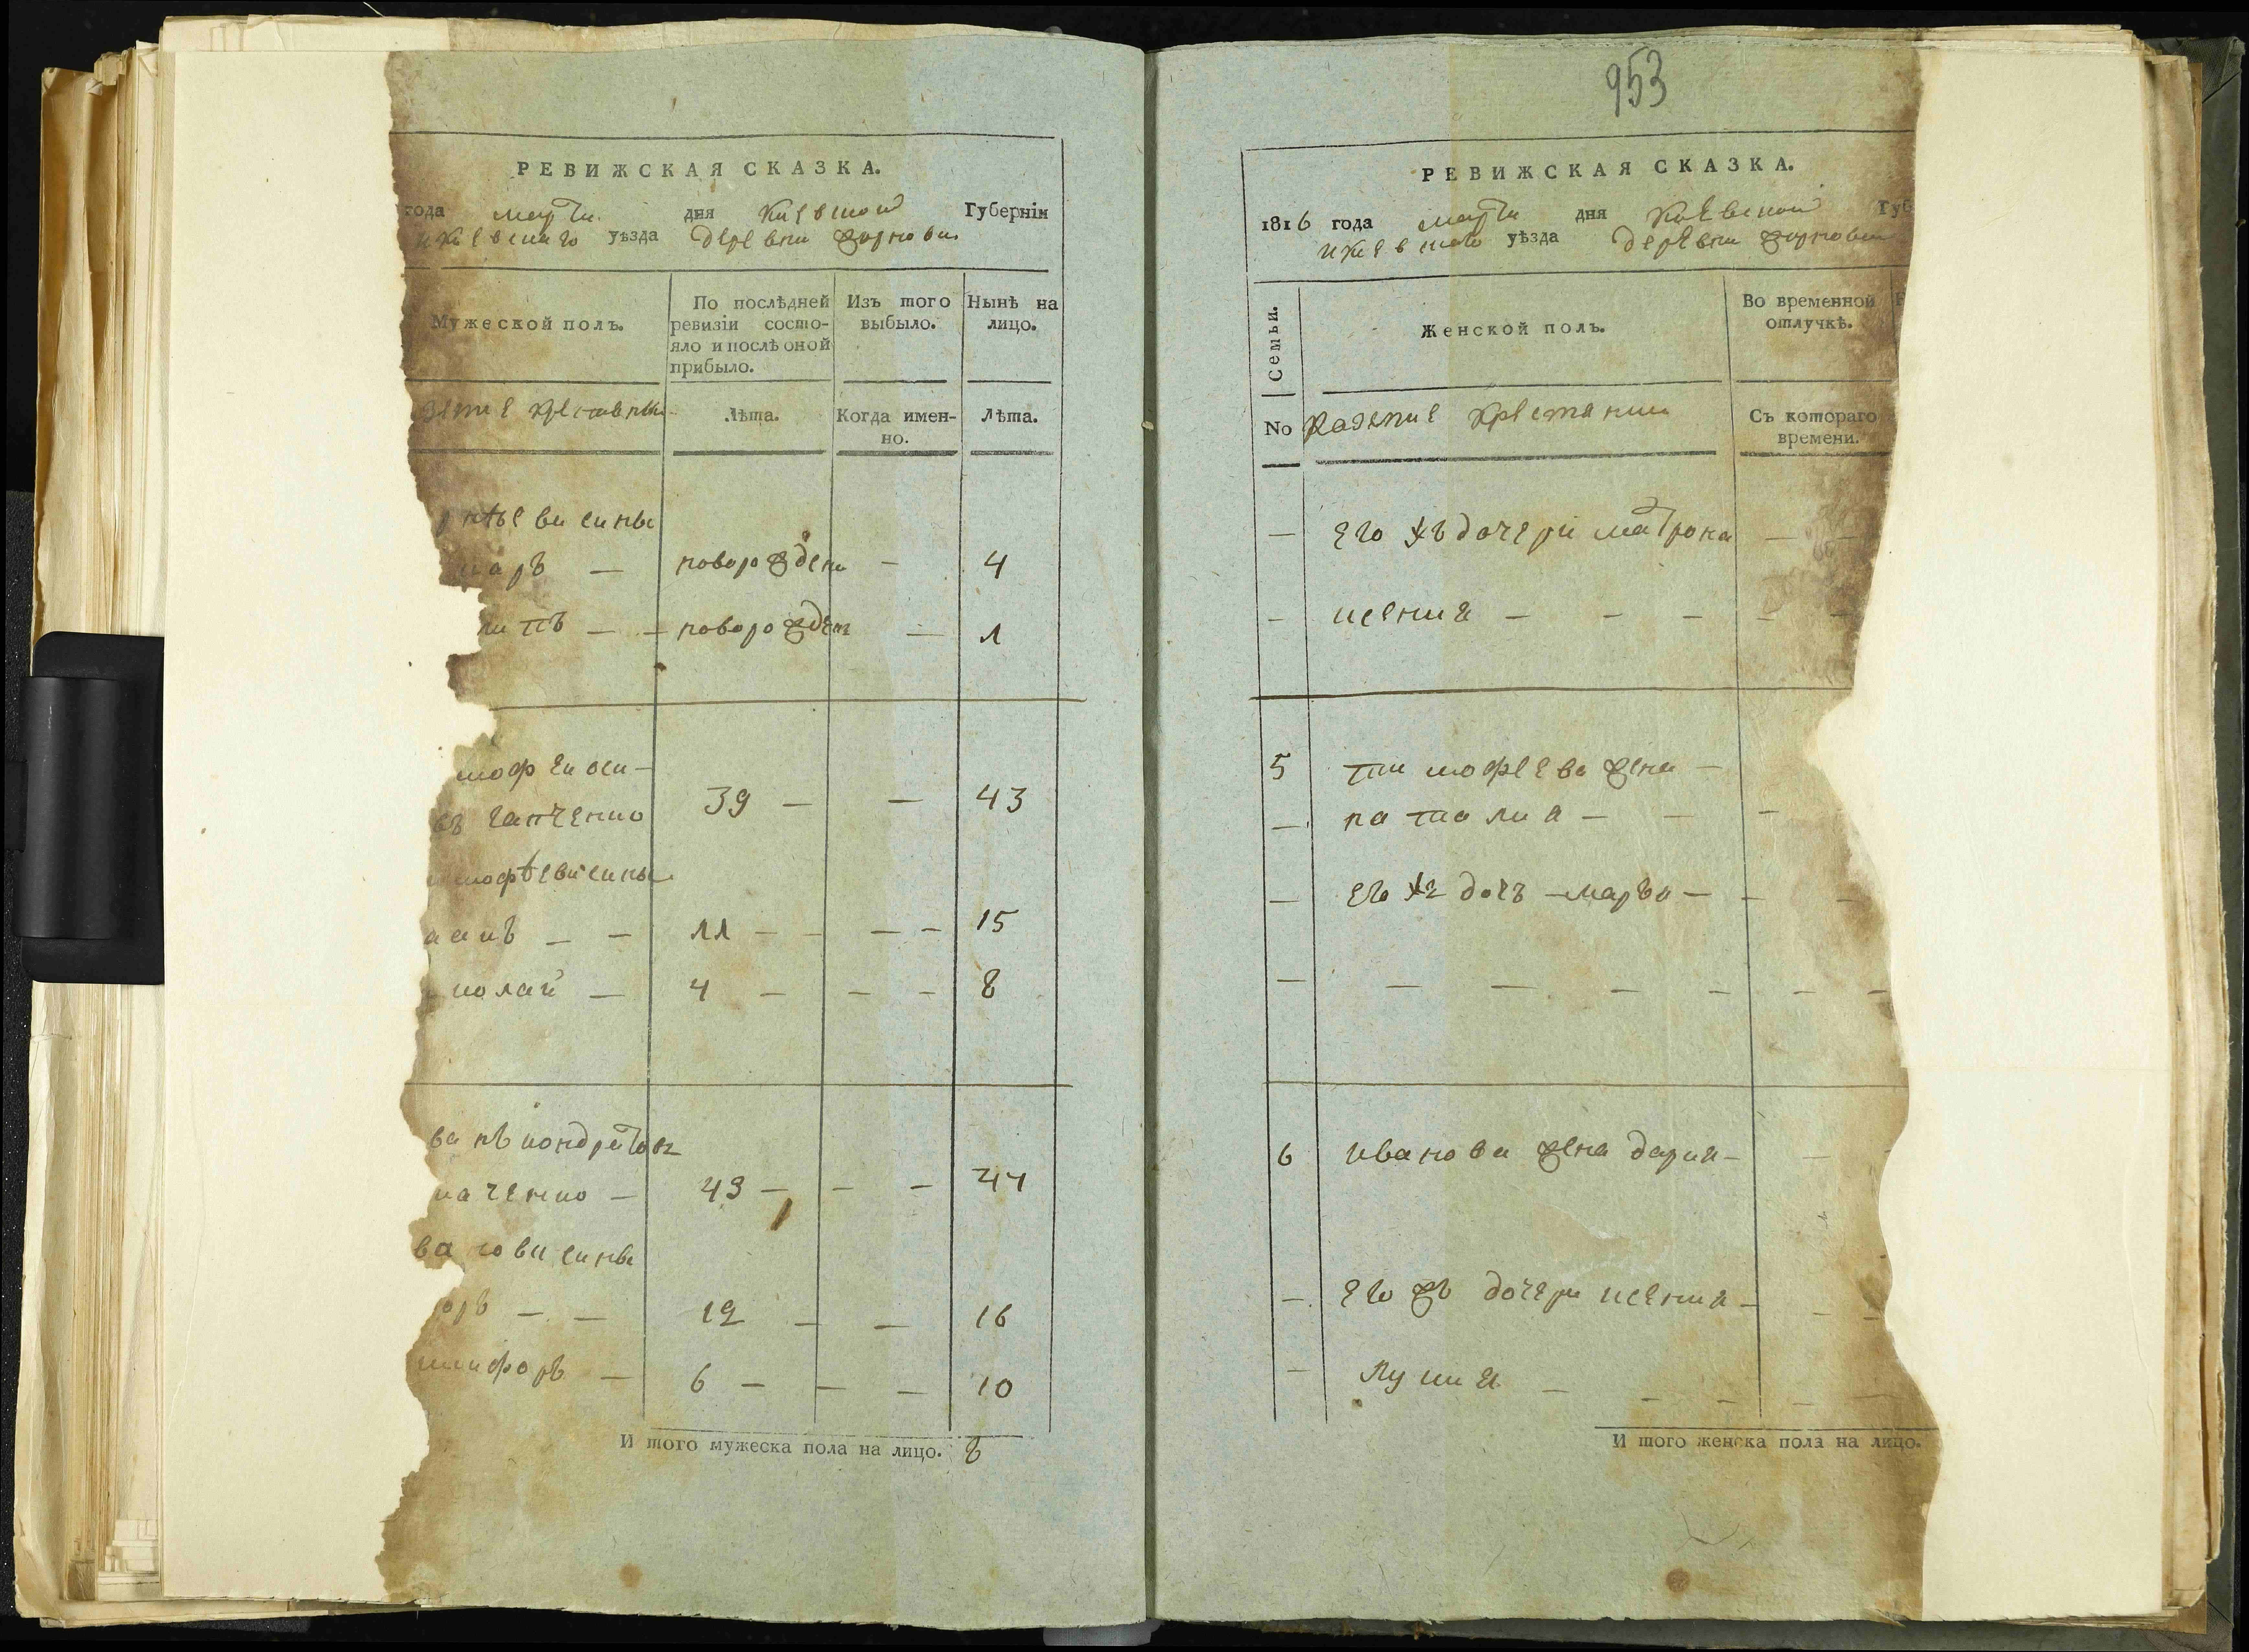 РЕВИЖСКАЯ СКАЗКА.
года марта дня Киевской Губернїи
Киевскаго уѣзда деревни жорновки
Мужеской полъ.
По послѣдней ревизїи состо-
яло и послѣ оной
прибыло.
Изъ того
выбыло.
Нынѣ на
лицо.
зенные крестьяне
Лѣта.
Когда имен-
но.
Лѣта.
рнѣевы сины
каръ — новорожден — 4
липъ — — новорожден — 1
мофей оси-
въ ганченко 39 — — 43
мофѣевы сины
асилъ — — 11 — — — — 15
колай — 4 — — — 8
ванъ кондратовъ
каченко — 43 — — — 44
вановы сины
оръ — — 12 — — 16
никифоръ — 6 — — — 10
И того мужеска пола на лицо. 8
953
РЕВИЖСКАЯ СКАЗКА.
1816 года марта дня Киевской Губ
Киевского уѣзда деревни жорновки
Семьи.
Женской полъ.
Во временной
отлучкѣ.
No
Казенние крестянки
Съ котораго
времени.
— его жъ дочери матрона — —
— ксения — — — — —
5 тимофеева жена —
— наталия — — —
— его жъ дочъ — маръя — — —
— — — — — — —
6 иванова жена дария — —
— его жъ дочери ксения — — —
— лукия — — — —
И того женска пола на лицо.